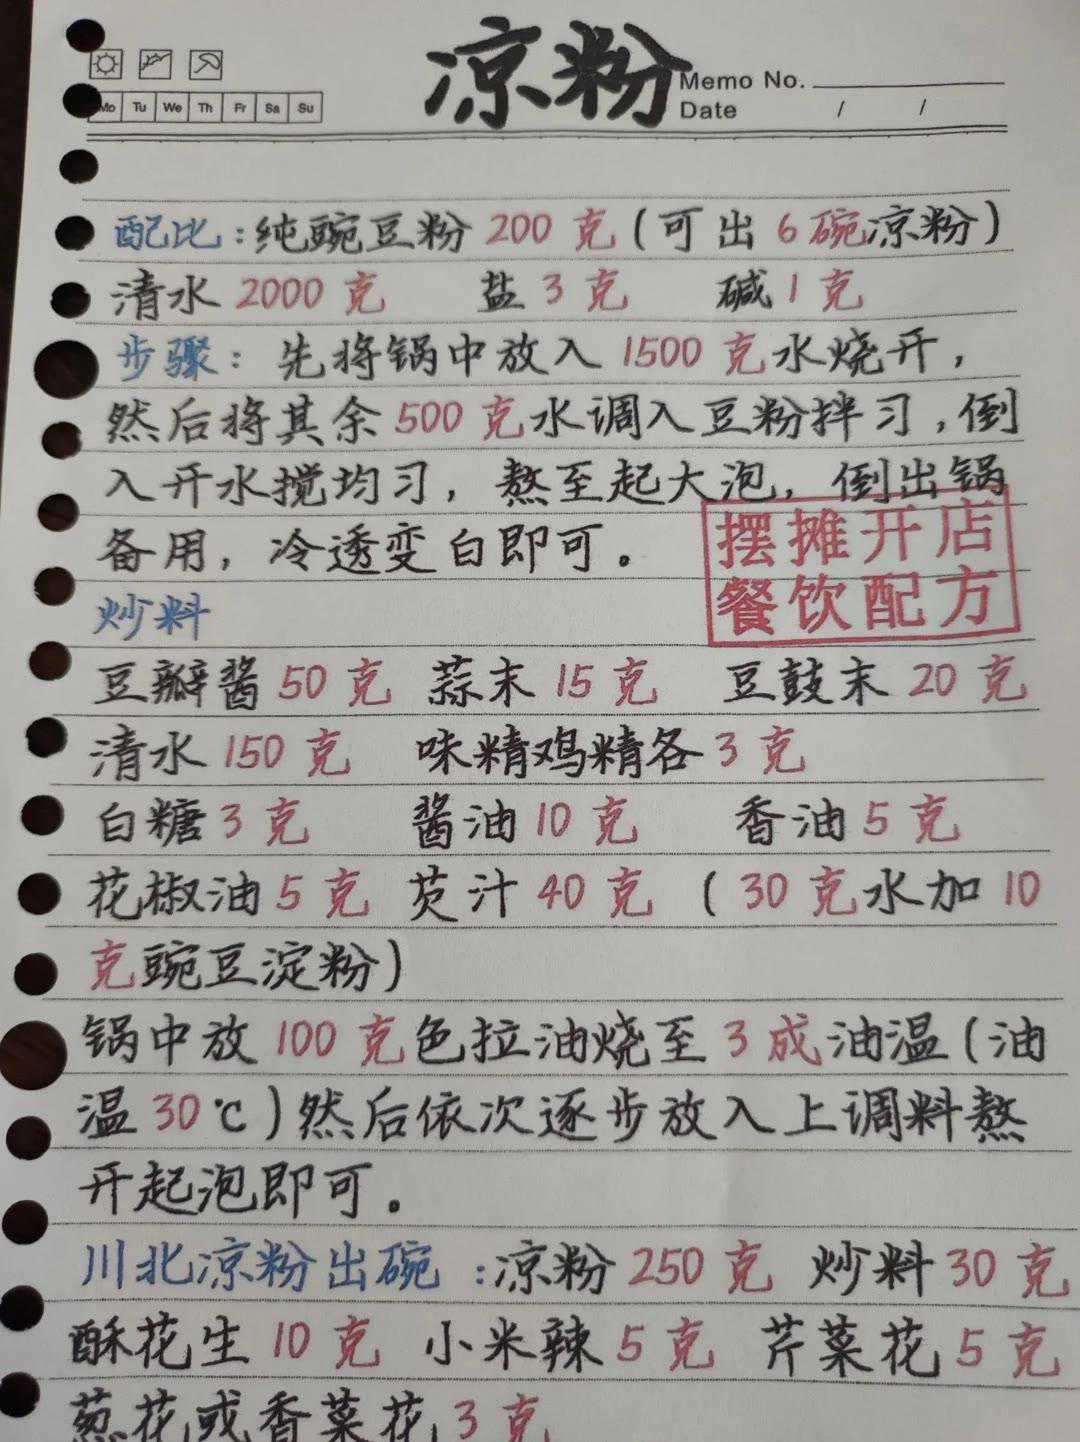 凉粉
Memo No.
Mo Tu We Th Fr Sa Su
Date / /
配比：纯豌豆粉 200 克（可出 6 碗凉粉）
清水 2000 克 盐 3 克 碱 1 克
步骤：先将锅中放入 1500 克水烧开，
然后将其余 500 克水调入豆粉拌习，倒
入开水搅均习，熬至起大泡，倒出锅
备用，冷透变白即可。
摆摊开店
餐饮配方
炒料
豆瓣酱 50 克 蒜末 15 克 豆鼓末 20 克
清水 150 克 味精鸡精各 3 克
白糖 3 克 酱油 10 克 香油 5 克
花椒油 5 克 芡汁 40 克（30 克水加 10
克豌豆淀粉）
锅中放 100 克色拉油烧至 3 成油温（油
温 30℃）然后依次逐步放入上调料熬
开起泡即可。
川北凉粉出碗：凉粉 250 克 炒料 30 克
酥花生 10 克 小米辣 5 克 芹菜花 5 克
葱花或香菜花 3 克